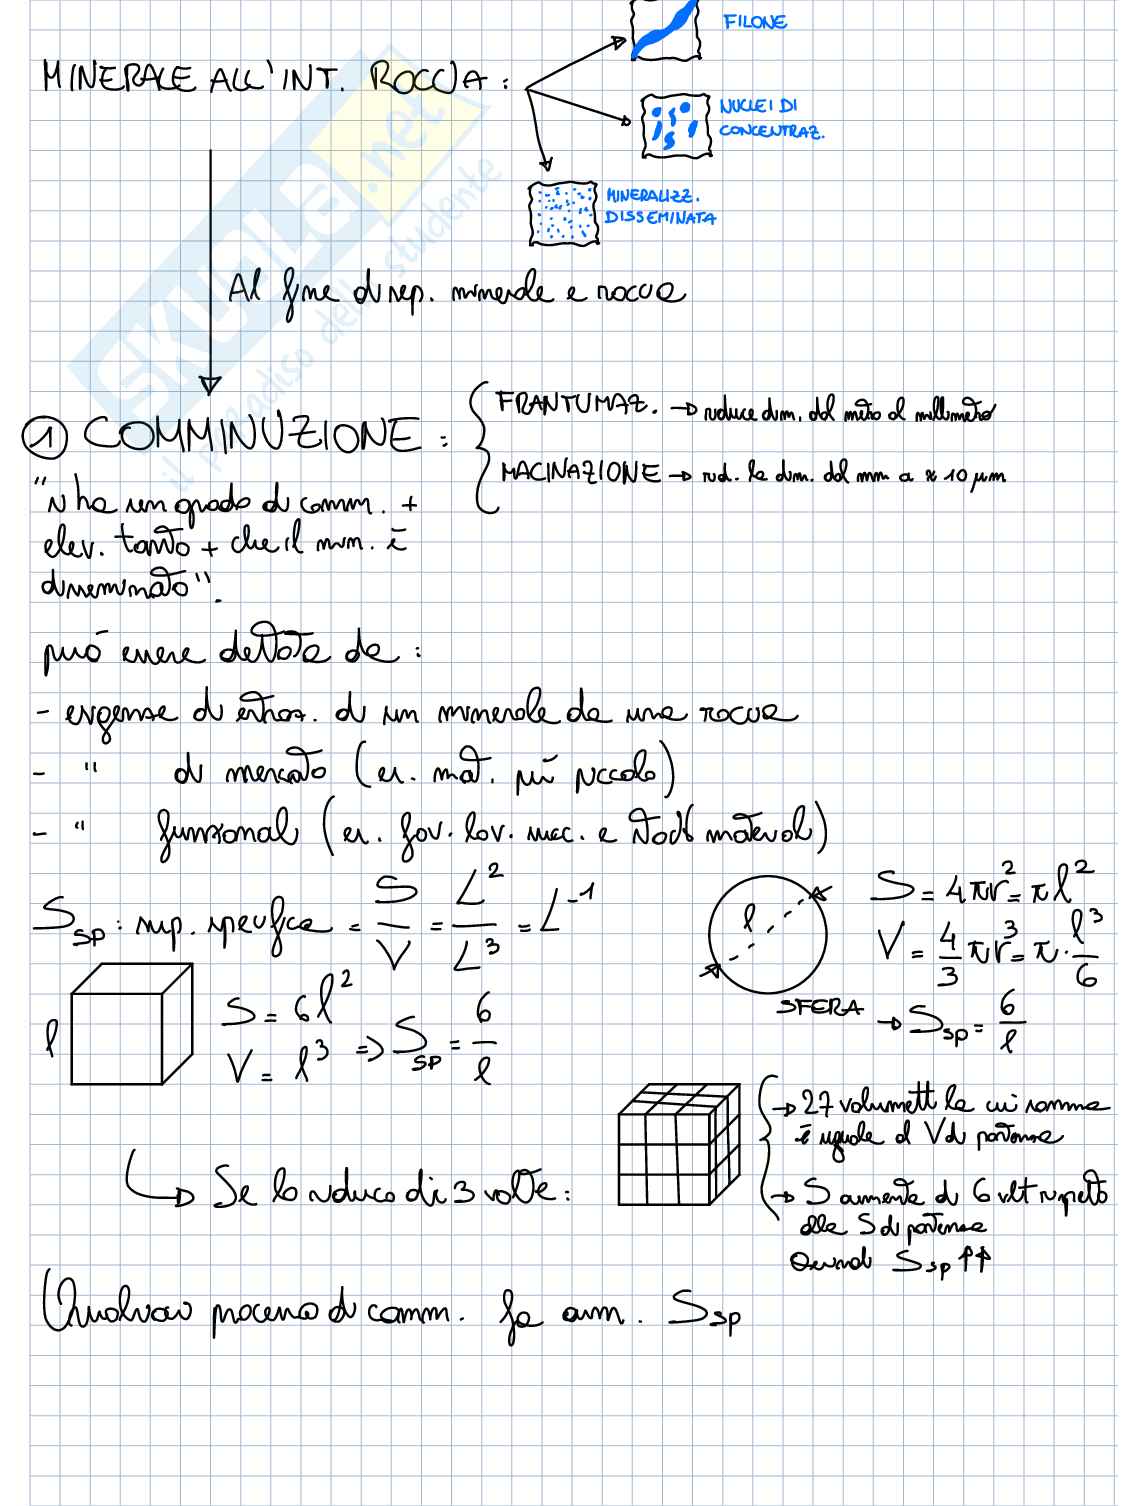 FILONE
MINERALE ALL'INT. ROCCIA :
NUCLEI DI
CONCENTRAZ.
MINERALIZZ.
DISSEMINATA
Al fine di sep. minerale e roccia
1 COMMINUZIONE :
FRANTUMAZ. → riduce dim. dal metro al millimetro
MACINAZIONE → rid. le dim. dal mm a ≈ 10 μm
"si ha un grado di comm. +
elev. tanto + che il min. è
disseminato".
può essere dettata da :
- esigenze di estraz. di un minerale da una roccia
- " di mercato (es. mat. più piccolo)
- " funzionali (es. fav. lav. mecc. e stock materiali)
S sp : sup. specifica = S/V = L²/L³ = L⁻¹
l
S = 4πr² = πl²
V = 4/3 πr³ = π · l³/6
SFERA → S sp = 6/l
l
S = 6l²
V = l³ => S sp = 6/l
→ Se lo riduco di 3 volte :
→ 27 volumetti la cui somma
è uguale al V di partenza
→ S aumenta di 6 volt rispetto
alla S di partenza
Quindi S sp ↑↑
Qualsiasi processo di comm. fa aum. S sp
SKUOLA.net
il paradiso dello studente